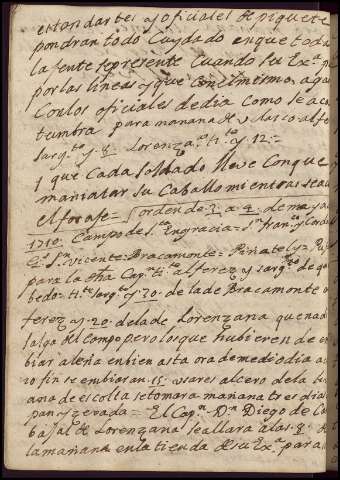 estandartes y oficiales de piquete
pondran todo Cuydado en que toda
la jente se presente Cuando su Exª p
por las lineas y que con el mismo aga
Con los oficiales de dia como se acos
tumbra para mañana
sargto y 8 Lorenzana tte y 12=
y que cada soldado lleve Con que
maniatar su Caballo mientras se a
el foraje= orden de 2 a 4 de mayo
1710 Campo de Sta Engracia= Sn Franco
Sn Vicente= Bracamonte= Piñately=
para la dha Capn tte alferez y sargto de
bedo= tte sargto y 20= de la de Bracamonte
ferez y 20= de la de Lorenzana que nad
salga del campo pero los que hubieren de en
biar a leña enbien asta ora de mediodia
fin se embiaran 15 usares al cero de la
ana de escolta se tomara mañana tres dias
pan y zevada= El Capn Dn Diego de Ca
bajal de Lorenzana se allara a las 8 de
la mañana en la tienda de su Exª para